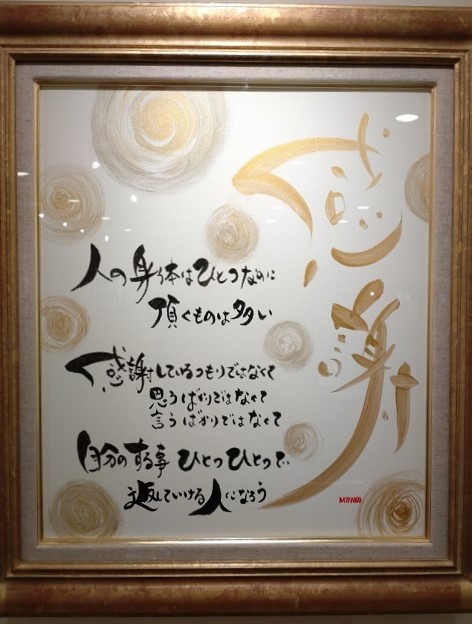 感謝
人の身体はひとつなのに
頂くものは多い
感謝しているつもりではなくて
思うばかりではなくて
言うばかりではなくて
自分のする事ひとつひとつで
お返していける人になろう